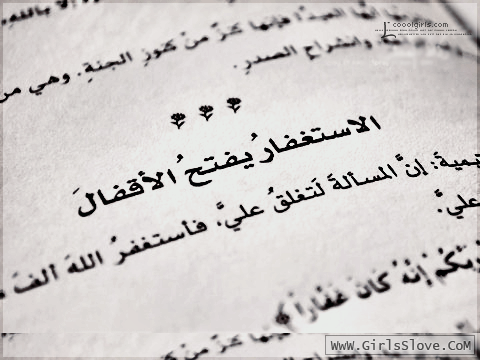 coool​girls.com
فإنها كنزٌ منْ كنوزِ الجنةِ. وهي من
وانشراحِ الصدرِ.
الاستغفارُ يفتحُ الأقفالَ
تيميةَ: إنَّ المسألةَ لَتغلقُ عليَّ، فأستغفرُ اللهَ ألفَ
عليَّ.
رَبَّكُمْ إِنَّهُ كَانَ غَفَّاراً ﴾
www.GirlsSlove.CoM